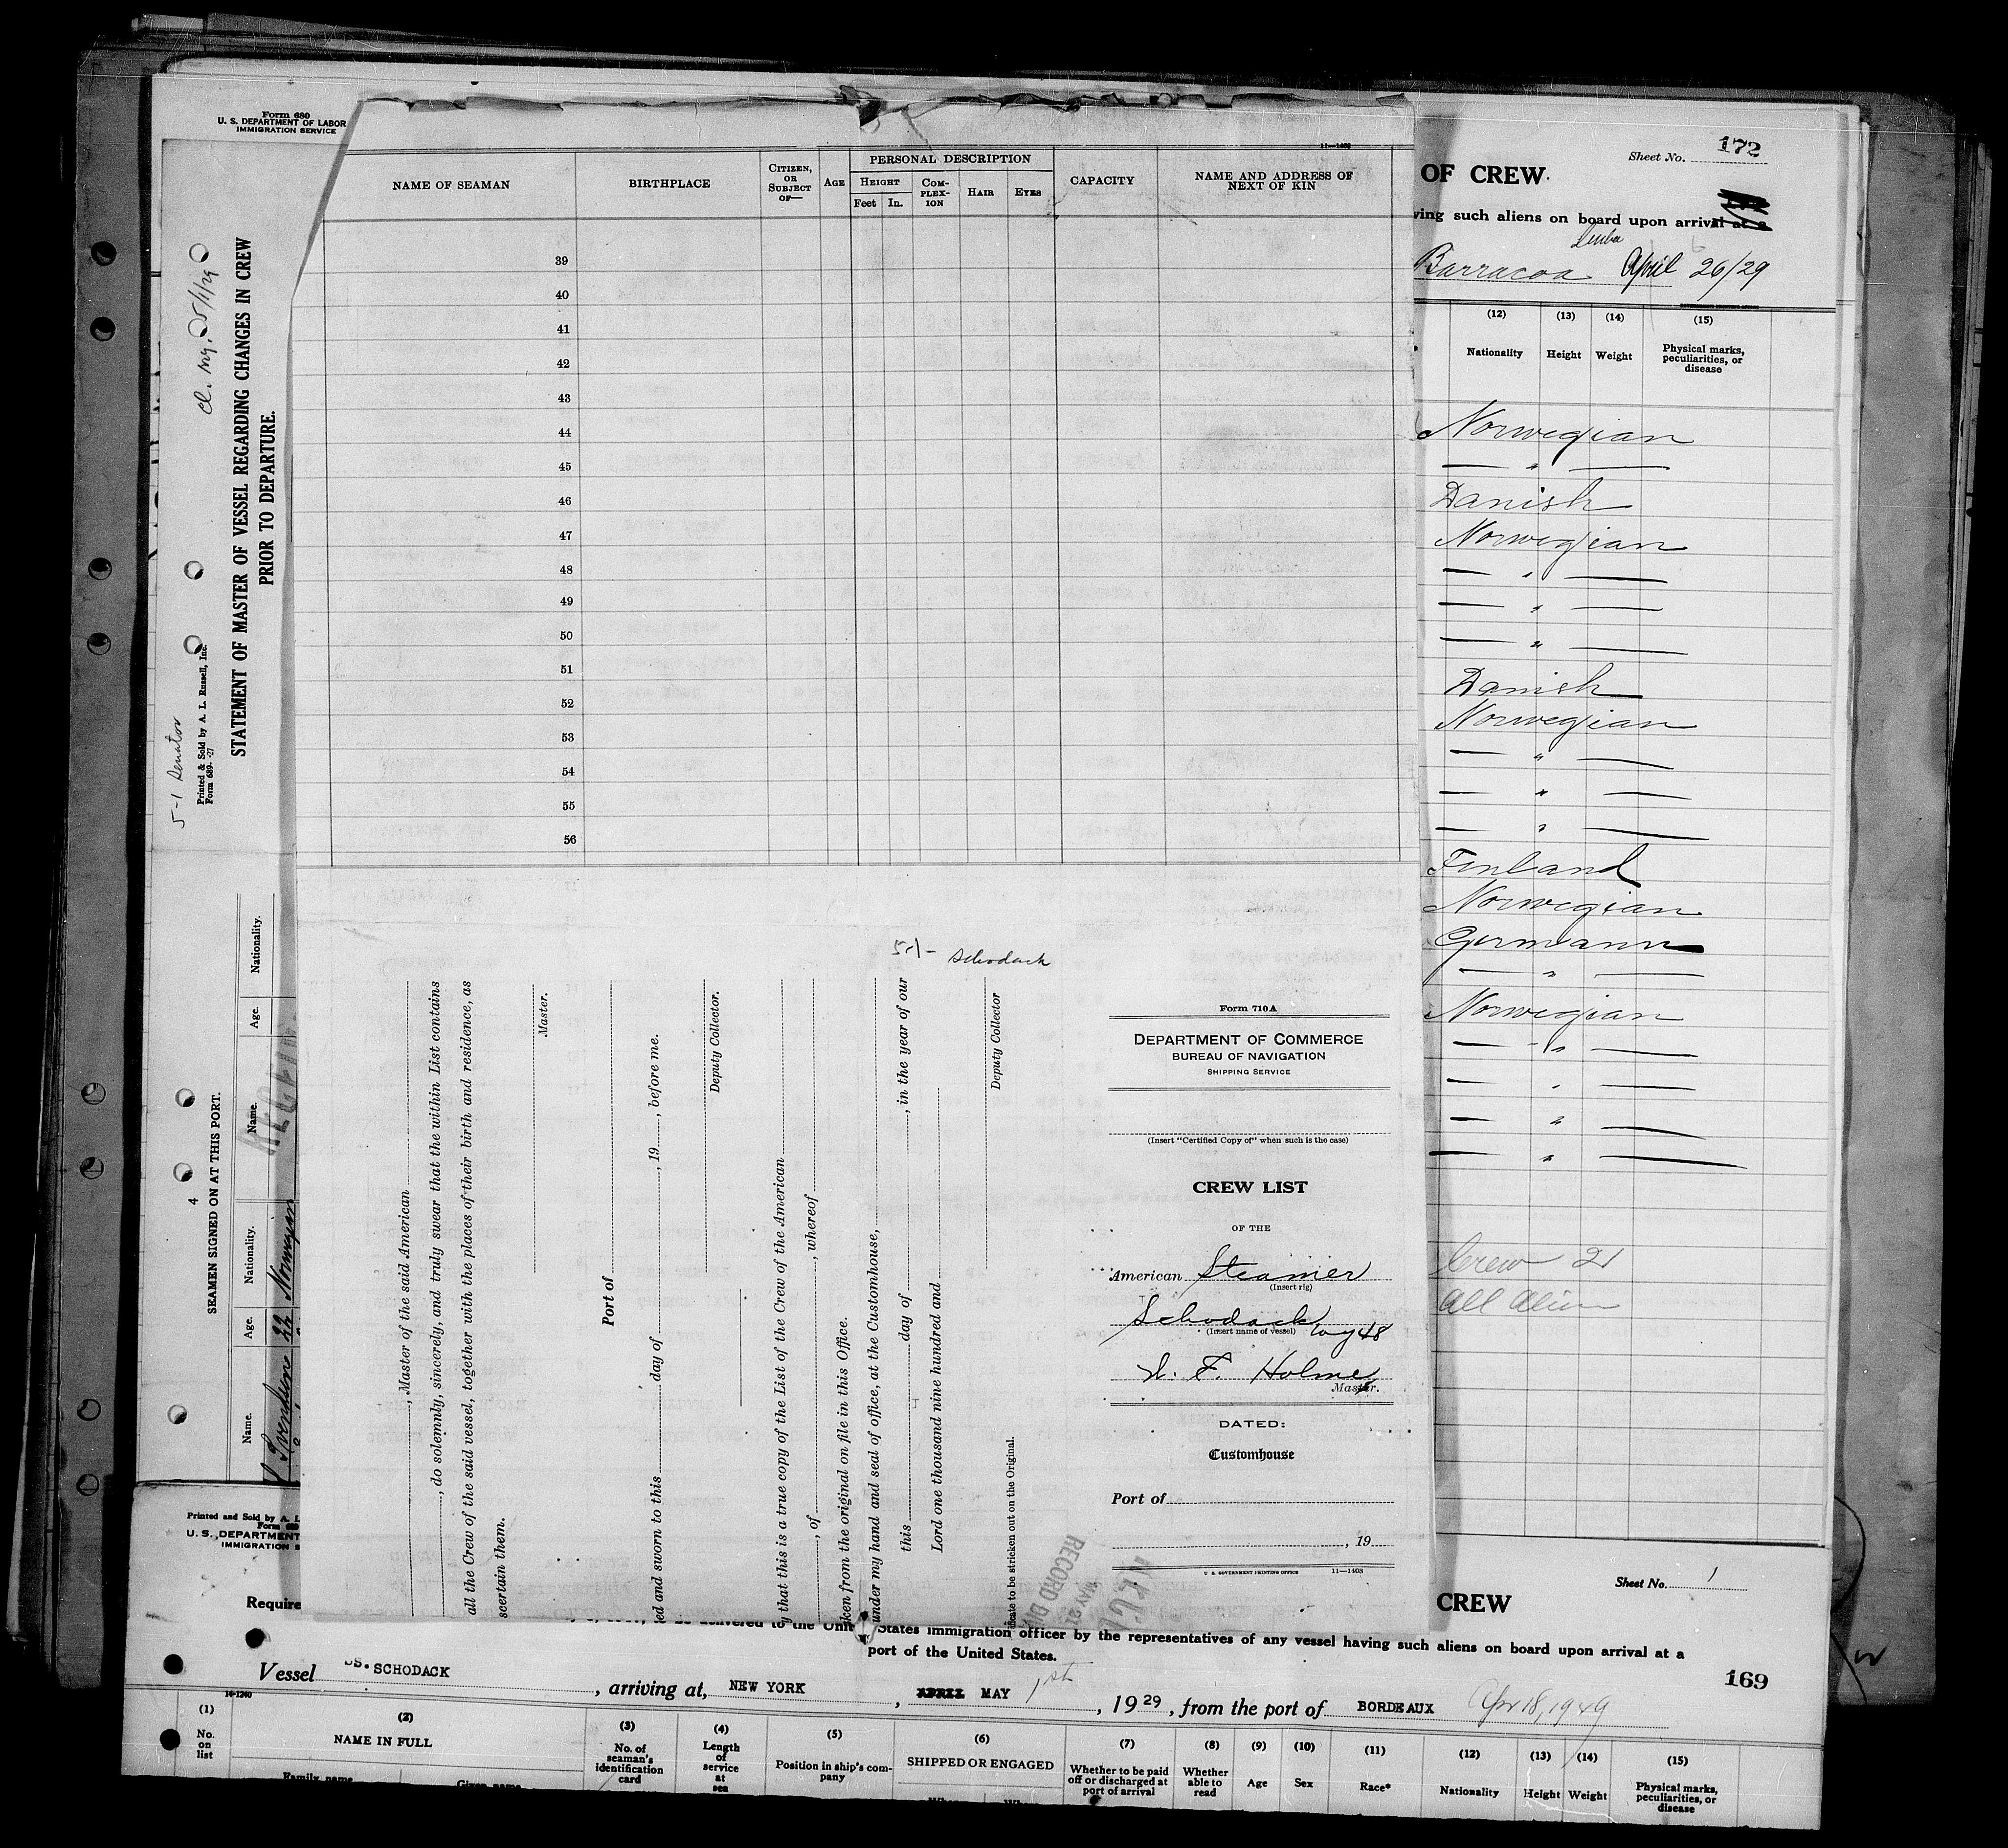 Form 680
U. S. DEPARTMENT OF LABOR
IMMIGRATION SERVICE
11—1403
NAME OF SEAMAN
BIRTHPLACE
CITIZEN, OR SUBJECT OF—
AGE
PERSONAL DESCRIPTION
HEIGHT
Feet In.
COM-PLEX-ION
HAIR
EYES
CAPACITY
NAME AND ADDRESS OF NEXT OF KIN
39
40
41
42
43
44
45
46
47
48
49
50
51
52
53
54
55
56
Sheet No. 172
OF CREW.
ving such aliens on board upon arrival at a
Barracoa April 26/29
(12) (13) (14) (15)
Nationality Height Weight Physical marks, peculiarities, or disease
Norwegian
— " —
Danish
Norwegian
— " —
— " —
— " —
Danish
Norwegian
— " —
— " —
— " —
Finland
Norwegian
Germann
— " —
Norwegian
— " —
— " —
— " —
— " —
Crew 21
All Alien
5/1/29
STATEMENT OF MASTER OF VESSEL REGARDING CHANGES IN CREW
PRIOR TO DEPARTURE.
Printed & Sold by A. L. Russell, Inc.
Form 689- -27
5-1 Senator
4
SEAMEN SIGNED ON AT THIS PORT.
Name. Age. Nationality. Name. Age. Nationality.
Svendsen 22 Norwegian
5-1- Schodack
, Master of the said American
, do solemnly, sincerely, and truly swear that the within List contains
all the Crew of the said vessel, together with the places of their birth and residence, as
scertain them.
Master.
Port of
ed and sworn to this day of , 19 , before me.
Deputy Collector.
y that this is a true copy of the List of the Crew of the American
, of , whereof
ken from the original on file in this Office.
under my hand and seal of office, at the Customhouse,
this day of , in the year of our
Lord one thousand nine hundred and
Deputy Collector
ificate to be stricken out on the Original.
RECORD DIV
MAY 21
Form 710A
DEPARTMENT OF COMMERCE
BUREAU OF NAVIGATION
SHIPPING SERVICE
(Insert "Certified Copy of" when such is the case)
CREW LIST
OF THE
American Steamer
(Insert rig)
Schodack
(Insert name of vessel)
F. Holmes
Master.
DATED:
Customhouse
Port of
, 19
U. S. GOVERNMENT PRINTING OFFICE 11—1403
Printed and Sold by A. L
Form 680
U. S. DEPARTMENT
IMMIGRATION S
Sheet No. 1
CREW
Require
delivered to the Unit States immigration officer by the representatives of any vessel having such aliens on board upon arrival at a
port of the United States.
169
Vessel SS. SCHODACK , arriving at, NEW YORK , APRIL MAY 1st , 1929 , from the port of BORDEAUX Apr 18, 1949
14-1240
(1) (2) (3) (4) (5) (6) (7) (8) (9) (10) (11) (12) (13) (14) (15)
No. on list
NAME IN FULL
Family name Given name
No. of seaman's identification card
Length of service at sea
Position in ship's com-pany
SHIPPED OR ENGAGED
When Where
Whether to be paid off or discharged at port of arrival
Whether able to read
Age
Sex
Race*
Nationality
Height
Weight
Physical marks, peculiarities, or disease